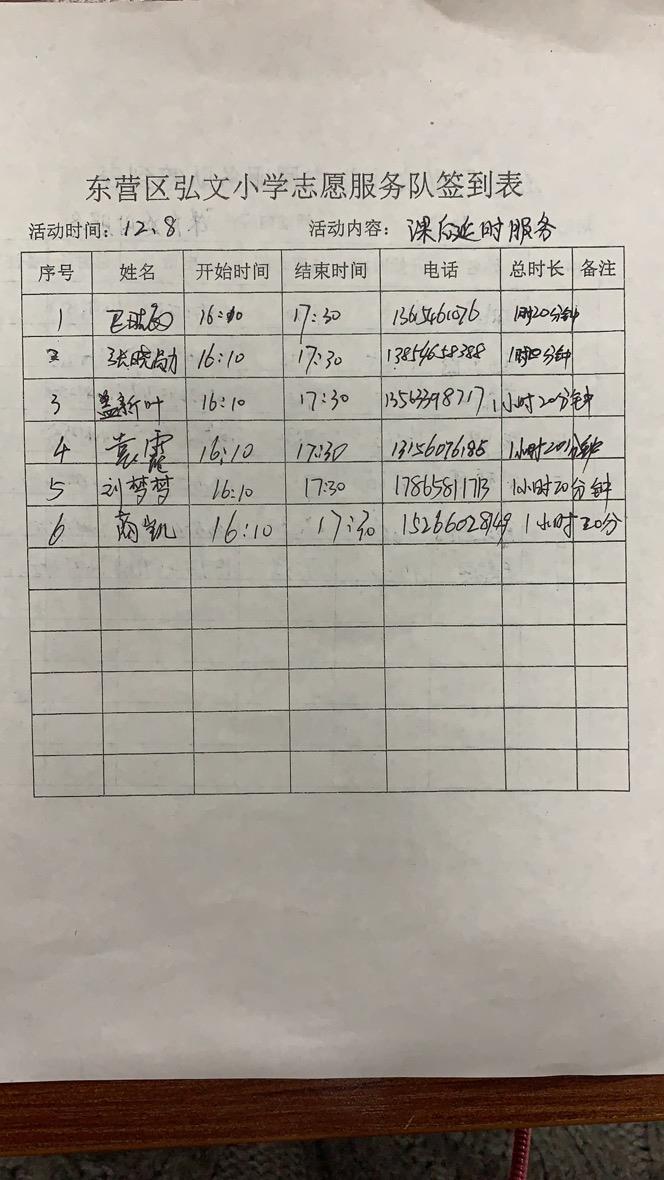 东营区弘文小学志愿服务队签到表
活动时间：12.8 活动内容：课后延时服务
序号 姓名 开始时间 结束时间 电话 总时长 备注
1 16:10 17:30 1时20分钟
2 张晓励 16:10 17:30 13854658388 1时20分钟
3 盖新叶 16:10 17:30 13563398717 1小时20分钟
4 袁霞 16:10 17:30 13156076185 1小时20分钟
5 刘梦梦 16:10 17:30 17865811713 1小时20分钟
6 商凯 16:10 17:30 15266028149 1小时20分